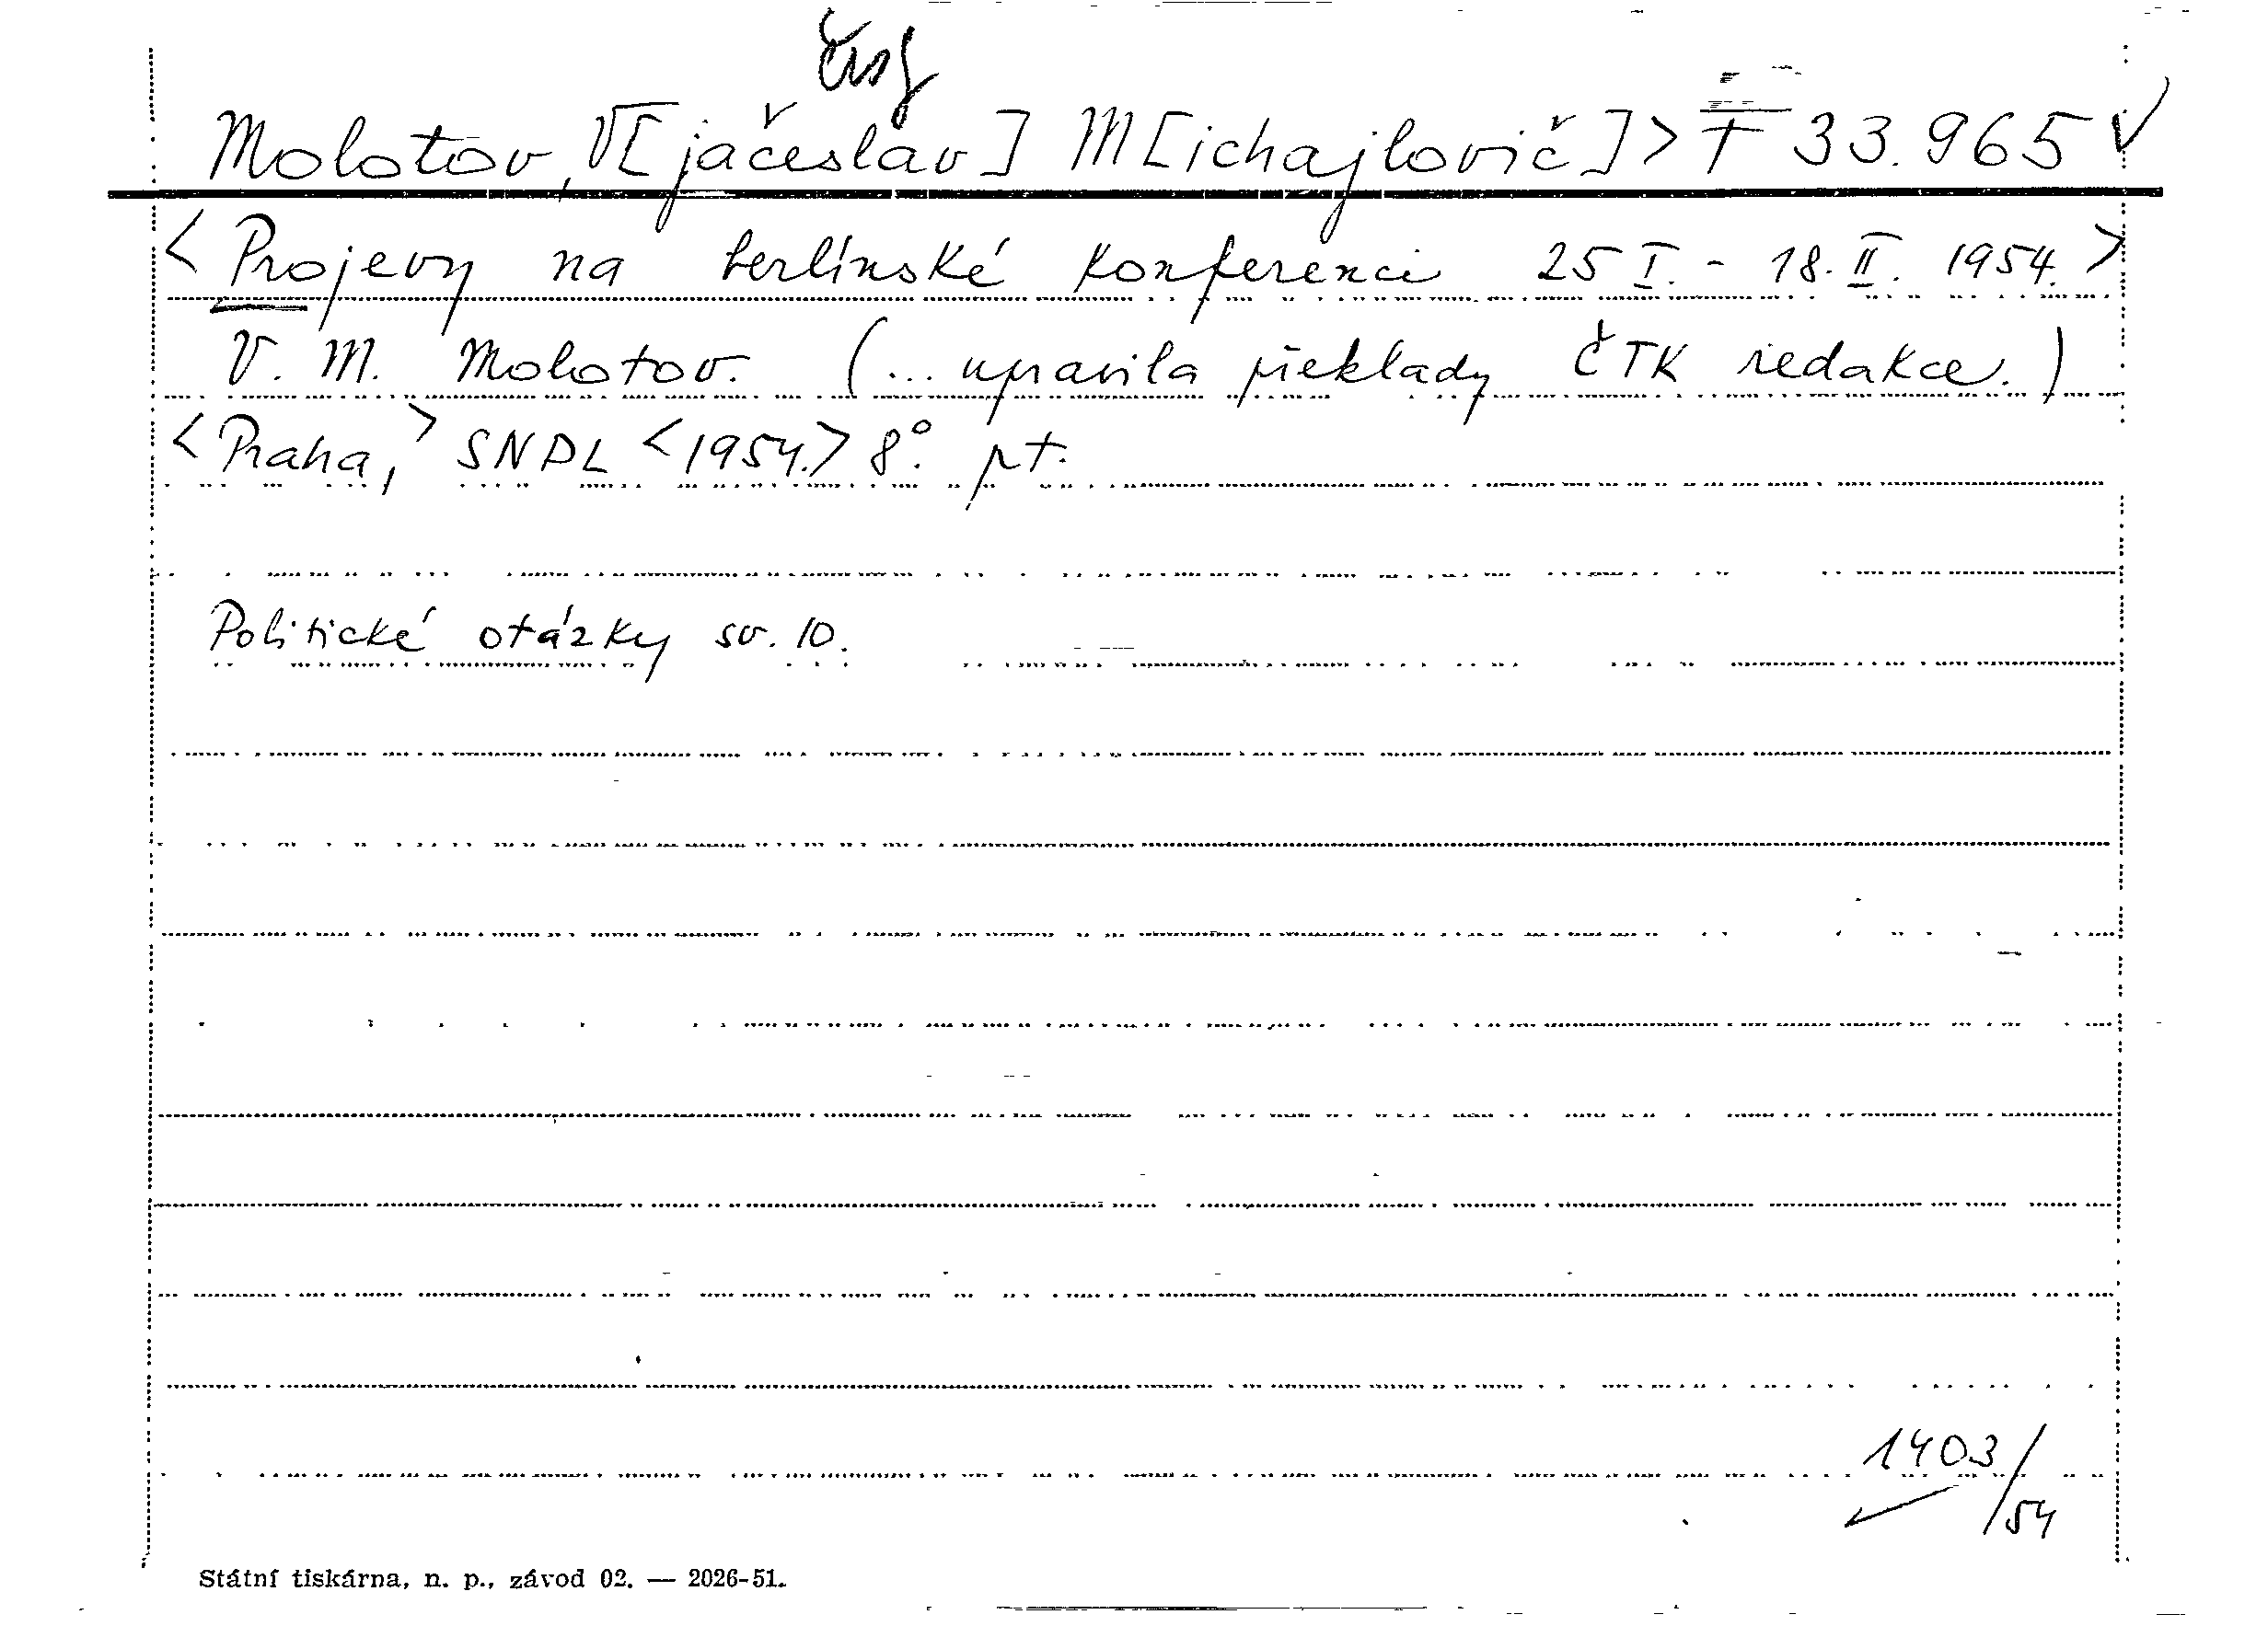 Molotov, V[jačeslav] M[ichajlovič] > T 33.965
< Projevy na berlínské konferenci 25 I. - 18. II. 1954. >
V. M. Molotov. (... upravila překlady ČTK redakce.)
< Praha, > SNPL < 1954. > 8°. pt.
Politické otázky sv. 10.
1403/54
Státní tiskárna, n. p., závod 02. — 2026-51.